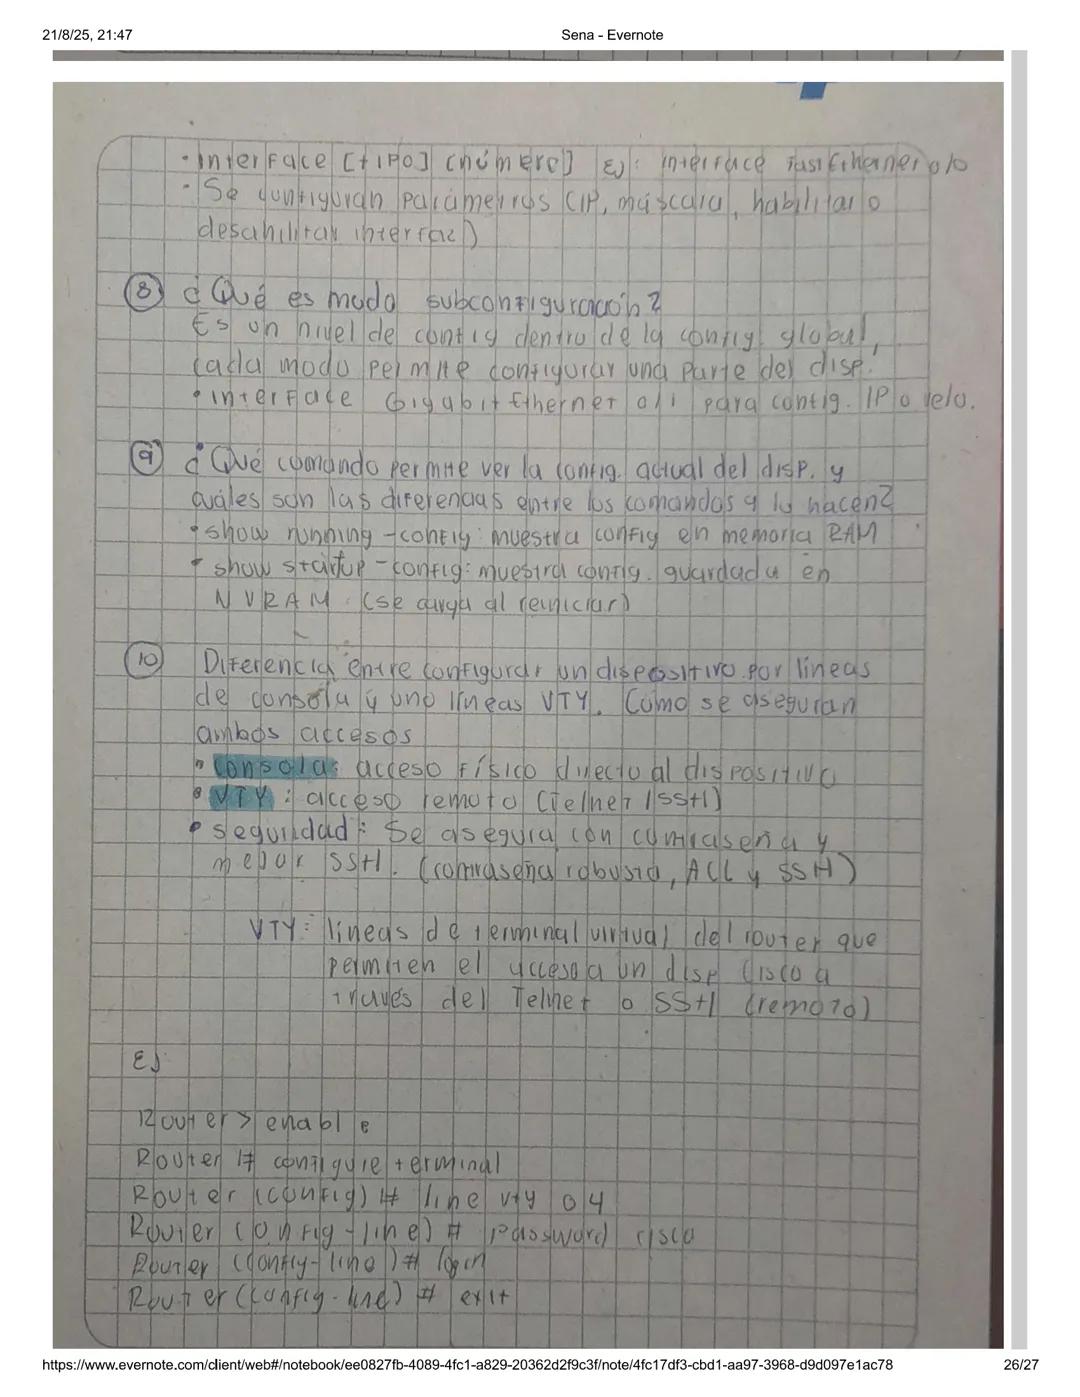 21/8/25, 21:47
Sena - Evernote
• Interface [tipo] [número] Ej: interface FastEthernet 0/0
• Se configuran parámetros (IP, máscara, habilitar o
desahilitar interfaz)
⑧ ¿Qué es modo subconfiguración?
Es un nivel de config dentro de la config. global,
cada modo permite configurar una parte del disp.
• interface GigabitEthernet 0/1 para config. IP o velo.
⑨ ¿Qué comando permite ver la config. actual del disp. y
cuáles son las diferencias entre los comandos q lo hacen?
• show running-config: muestra config en memoria RAM
• show startup-config: muestra config. guardada en
NVRAM (se carga al reiniciar)
⑩ Diferencia entre configurar un dispositivo por líneas
de consola y uno líneas VTY. Cómo se aseguran
ambos accesos
• consola: acceso físico directo al dispositivo
• VTY: acceso remoto (Telnet / SSH)
• seguridad: Se asegura con contraseña y
mejor SSH. (contraseña robusta, ACL y SSH)
VTY: líneas de terminal virtual del router que
permiten el acceso a un disp cisco a
través del Telnet o SSH (remoto)
Ej
Router> enable
Router # configure terminal
Router (config) # line vty 0 4
Router (config-line) # password cisco
Router (config-line) # login
Router (config-line) # exit
https://www.evernote.com/client/web#/notebook/ee0827fb-4089-4fc1-a829-20362d2f9c3f/note/4fc17df3-cbd1-aa97-3968-d9d097e1ac78
26/27